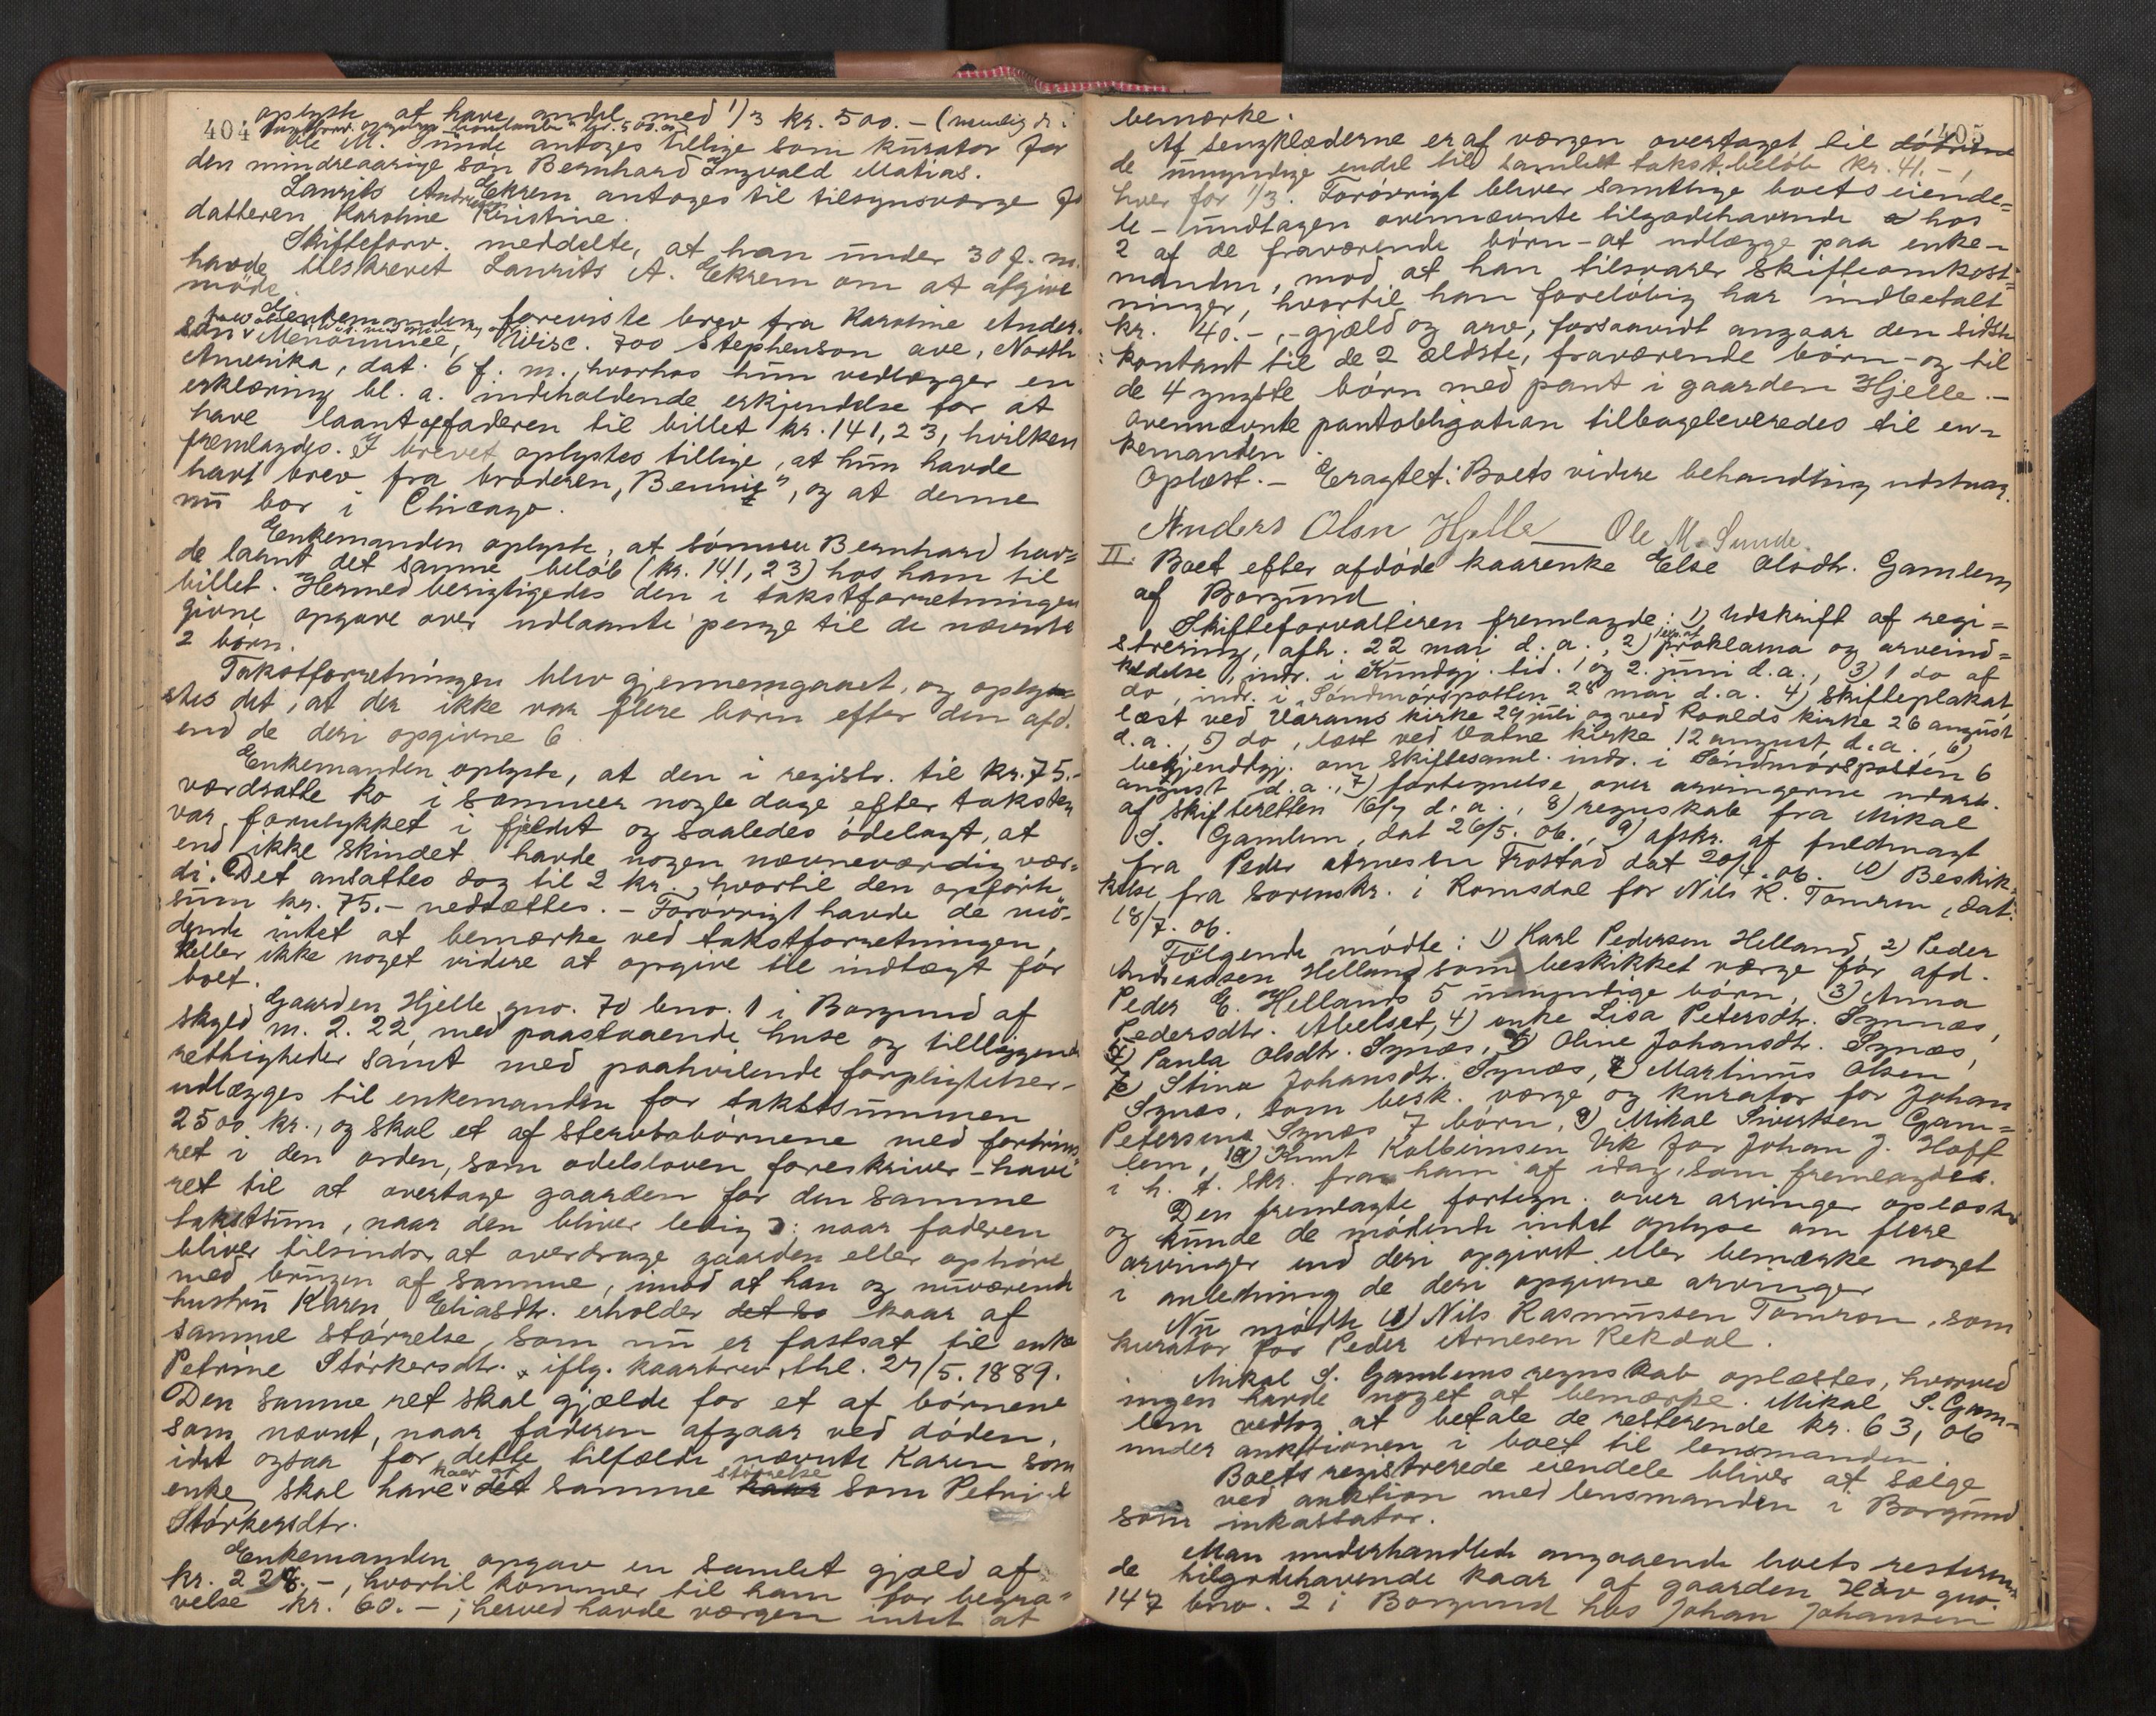 404
oplyste at have andel med 1/3 kr. 500.- (
Ole M. Sunde antoges tillige som kurator for
den mindreaarige søn Bernhard Ingvald Matias.
Laurits Andreas Ekrem antoges til tilsynsværge for
datteren Karoline Kristine.
Skifteforv. meddelte, at han under 30 f. m.
havde tilskrevet Laurits A. Ekrem om at afgive
møde.
Enkemanden foreviste brev fra Karoline Ander-
son, Menominee, Wisc. 700 Stephenson ave, North
Amerika, dat. 6 f. m., hvorhos hun vedlægger en
erklæring bl. a. indeholdende erkjendelse for at
have laant af faderen til billet kr. 141,23, hvilken
fremlagdes. I brevet oplystes tillige, at hun havde
havt brev fra broderen, "Bennie", og at denne
nu bor i Chicago.
Enkemanden oplyste, at sønnen Bernhard hav-
de laant det samme beløb (kr. 141,23) hos ham til
billet. Hermed berigtigedes den i takstforretningen
givne opgave over udlaante penge til de nævnte
2 børn.
Takstforretningen blev gjennemgaaet, og oply-
stes det, at der ikke var flere børn efter den afd.
end de deri opgivne 6.
Enkemanden oplyste, at den i registr. til kr. 75.-
værdsatte ko i sommer nogle dage efter taksten
var forulykket i fjeldet og saaledes ødelagt, at
end ikke skindet havde nogen nævneværdig vær-
di. Det ansattes dog til 2 kr., hvortil den opførte
sum kr. 75.- nedsættes. - Forøvrigt havde de mø-
dende intet at bemærke ved takstforretningen,
heller ikke noget videre at opgive til indtægt for
boet.
Gaarden Hjelle gno. 70 bno. 1 i Borgund af
skyld m. 2.22, med paastaaende huse og tilliggende
rettigheder samt med paahvilende forpligtelser -
udlægges til enkemanden for takstsummen
2500 kr., og skal et af stervbobørnene med fortrins-
ret i den orden, som odelsloven foreskriver - have
ret til at overtage gaarden for den samme
takstsum, naar den bliver ledig ɔ: naar faderen
bliver tilsinds at overdrage gaarden eller ophøre
med brugen af samme, imod at han og nuværende
hustru Karen Eliasdtr. erholder det sa kaar af
samme størrelse, som nu er fastsat til enke
Petrine Størkersdtr. iflg. kaarbrev, thl. 27/5. 1889.
Den samme ret skal gjælde for et af børnene
som nævnt, naar faderen afgaar ved døden,
idet ogsaa for dette tilfælde nævnte Karen som
enke skal have kaar af det samme kaar størrelse som Petrine
Størkersdtr.
Enkemanden opgav en samlet gjæld af
kr. 228.-, hvortil kommer til ham for begra-
velse kr. 60.-; herved havde værgen intet at
405
bemærke.
Af sengklæderne er af værgen overtaget til døtrene
de umyndige endel til samlet takst.beløb kr. 41.-,
hver for 1/3. Forøvrigt bliver samtlige boets eiende-
le - undtagen ovennævnte tilgodehavende hos
2 af de fraværende børn - at udlægge paa enke-
manden, mod at han tilsvarer skifteomkost-
ninger, hvortil han foreløbig har indbetalt
kr. 40.-, - gjæld og arv, forsaavidt angaar den sidste
kontant til de 2 ældste, fraværende børn - og til
de 4 yngste børn med pant i gaarden Hjelle. -
Ovennævnte pantobligation tilbageleveredes til en-
kemanden.
Oplæst. - Eragtet: Boets videre behandling udstaar.
Anders Olsn Hjelle Ole M. Sunde.
II. Boet efter afdøde kaarenke Else Olsdtr. Gamlem
af Borgund
Skifteforvalteren fremlagde: 1) Udskrift af regi-
strering, afh. 22 mai d. a., 2) proklama og arveind-
kaldelse, indr. i Kundgj. tid. 1 og 2. juni d. a., 3) 1 do af
do, indr. i Søndmørsposten 28 mai d. a. 4) skifteplakat,
læst ved Harams kirke 29 juli og ved Roalds kirke 26 august
d. a., 5) do, læst ved Vatne kirke 12 august d. a., 6)
bekjendtgj. om skiftesaml. indr. i Søndmørsposten 6
august d. a., 7) fortegnelse over arvingerne udarb.
af skifteretten 16/7 d. a., 8) regnskab fra Mikal
S. Gamlem, dat 26/5. 06., 9) afskr. af fuldmagt
fra Peder Arnesen Frostad dat 20/4. 06. 10) Beskik-
kelse fra sorenskr. i Romsdal for Nils R. Tomren, dat.
18/7. 06.
Følgende mødte: 1) Karl Pedersen Helland, 2) Peder
Andreassen Helland som beskikket værge for afd.
Peder E. Hellands 5 umyndige børn, 3) Anna
Pedersdtr. Abelset, 4) enke Lisa Petersdtr. Synnæs,
5) Paula Olsdtr. Synæs, 6) Oline Johansdtr. Synæs,
7) Stina Johansdtr. Synæs, 8) Martinus Olsen
Synæs, som besk. værge og kurator for Johan
Petersens Synæs 7 børn, 9) Mikal Sivertsen Gam-
lem, 10) Knut Kolbeinsen Vik for Johan J. Hoff
i h. t. skr. fra ham af idag, som fremlagdes.
Den fremlagte fortegn. over arvinger oplæstes
og kunde de mødende intet oplyse om flere
arvinger end deri opgivet eller bemærke noget
i anledning de deri opgivne arvinger
Nu mødte 11) Nils Rasmussen Tomren, som
kurator for Peder Arnesen Rekdal.
Mikal S. Gamlems regnskab oplæstes, hvorved
ingen havde noget at bemærke. Mikal S. Gam-
lem vedtog at betale de resterende kr. 63,06
under auktionen i boet til lensmanden.
Boets registrerede eiendele bliver at sælge
ved auktion med lensmanden i Borgund
som inkassator.
Man underhandlede angaaende boets resteren-
de tilgodehavende kaar af gaarden Hov gno.
147 bno. 2 i Borgund hos Johan Johansen